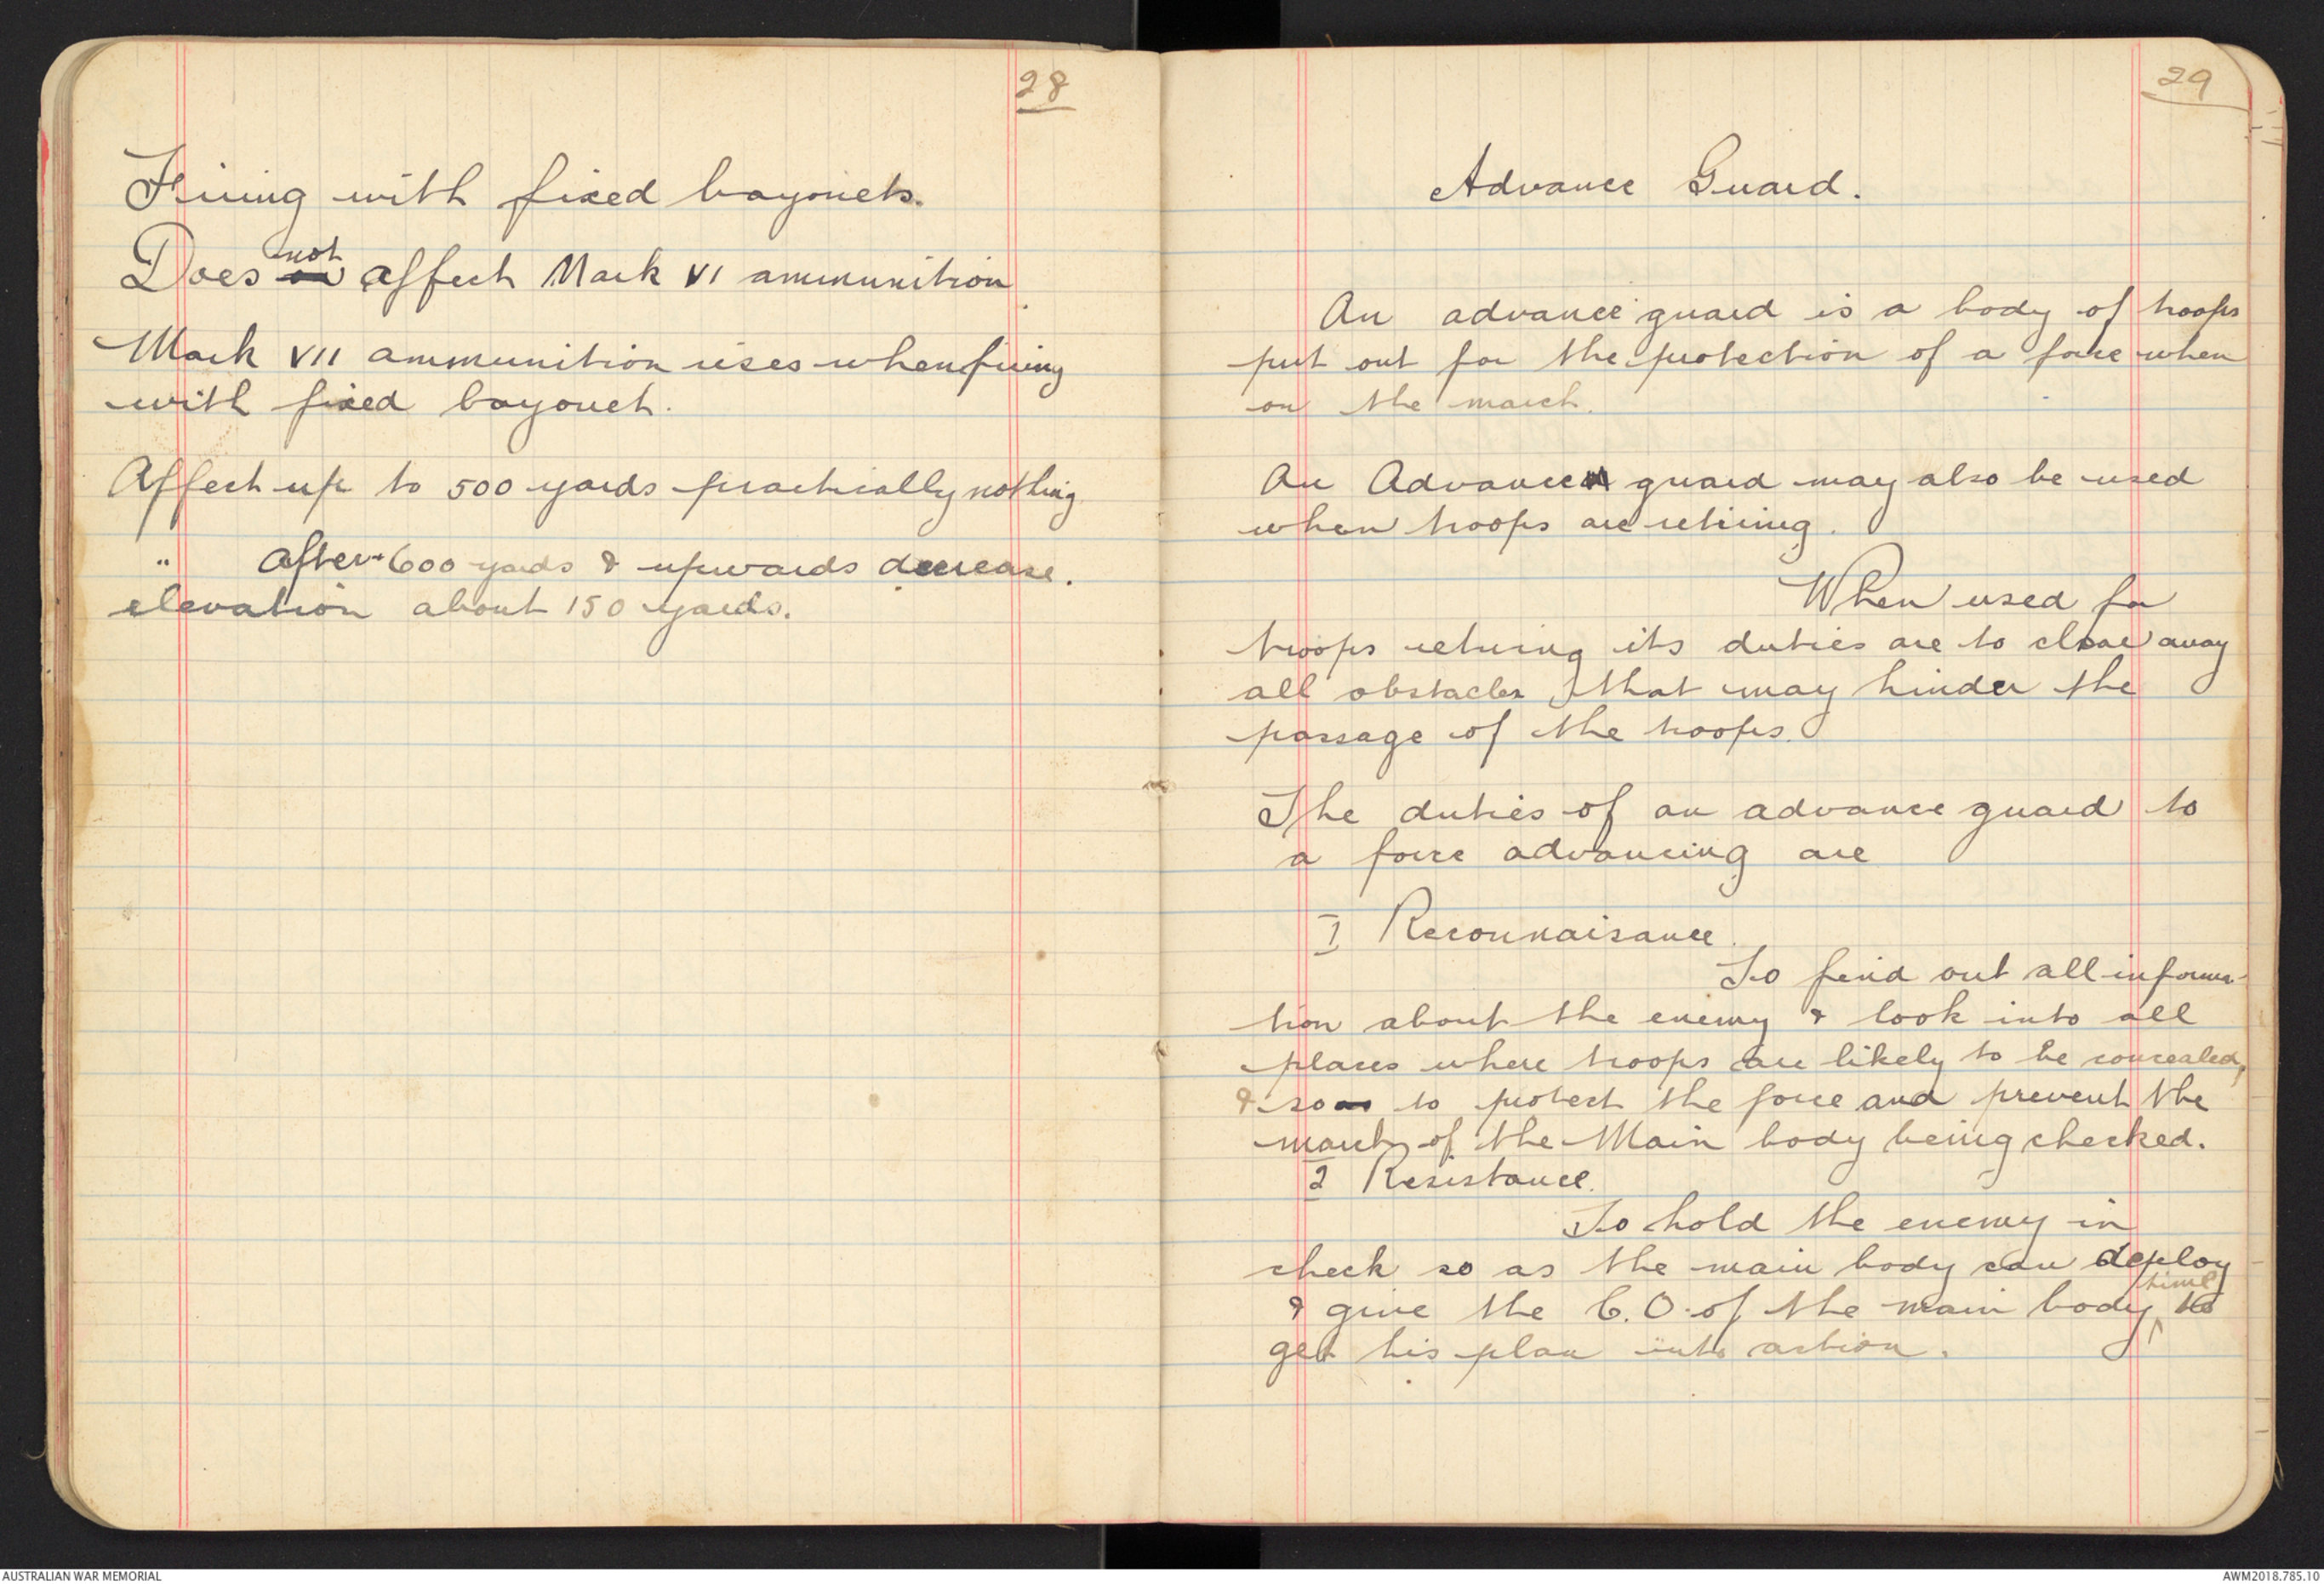 28
Firing with fixed bayonets.
Does not affect Mark VI ammunition
Mark VII ammunition rises when firing
with fixed bayonet.
Affect up to 500 yards practically nothing
" after 600 yards & upwards decrease.
elevation about 150 yards.
29
Advance Guard.
An advance guard is a body of troops
put out for the protection of a force when
on the march.
An Advance guard may also be used
when troops are retiring.
When used for
troops retiring its duties are to clear away
all obstacles that may hinder the
passage of the troops.
The duties of an advance guard to
a force advancing are
1 Reconnaisance.
To find out all informa-
tion about the enemy & look into all
places where troops are likely to be concealed,
& so as to protect the force and prevent the
march of the Main body being checked.
2 Resistance.
To hold the enemy in
check so as the main body can deploy
& give the C.O. of the main body time to
get his plan into action.
AUSTRALIAN WAR MEMORIAL
AWM2018.785.10